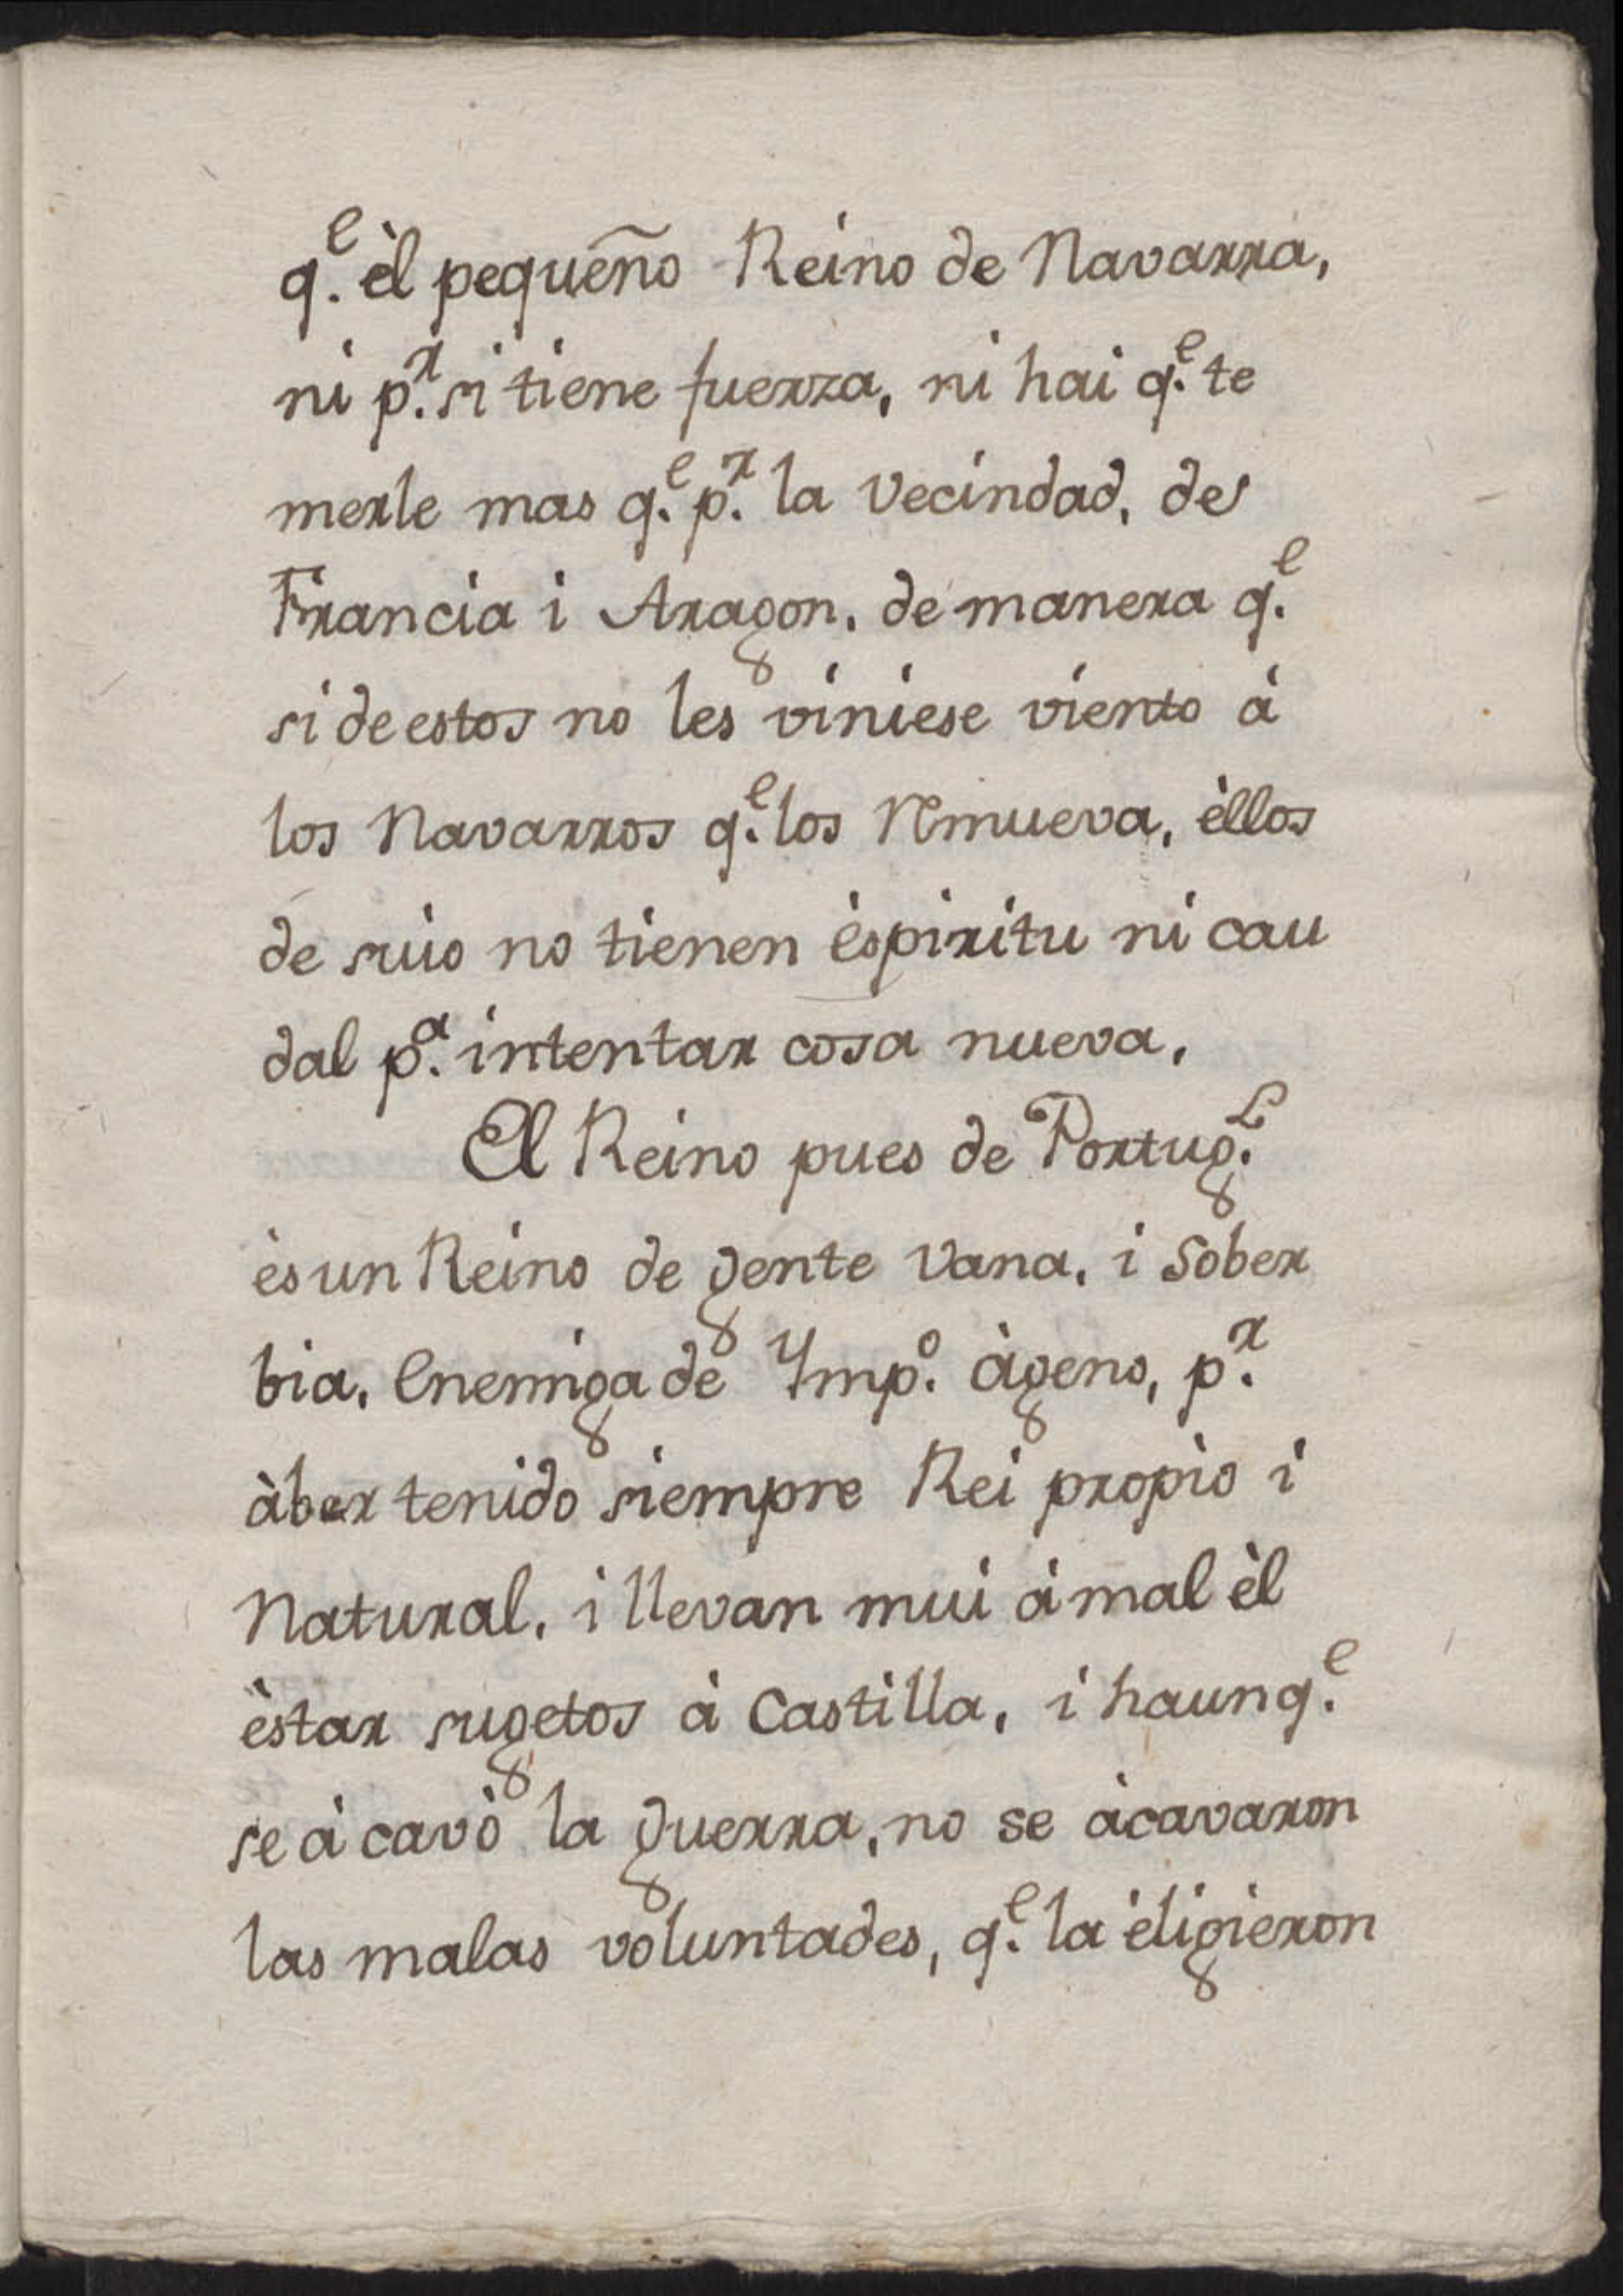 q.e èl pequeño Reino de Navarra,
ni p.r si tiene fuerza, ni hai q.e te
merle mas q.e p.r la Vecindad, de
Francia i Aragon, de manera q.e
si de estos no les viniese viento à
los Navarros q.e los Remueva, èllos
de suio no tienen èspiritu ni cau
dal p.a intentar cosa nueva,
El Reino pues de Portug.l
ès un Reino de gente Vana, i Sober
bia, Enemiga de Ymp.o àgeno, p.r
àber tenido siempre Rei propio i
Natural, i llevan mui à mal èl
èstar sugetos à Castilla, i haunq.e
se à cavò la guerra, no se àcavaron
las malas voluntades, q.e la èligieron